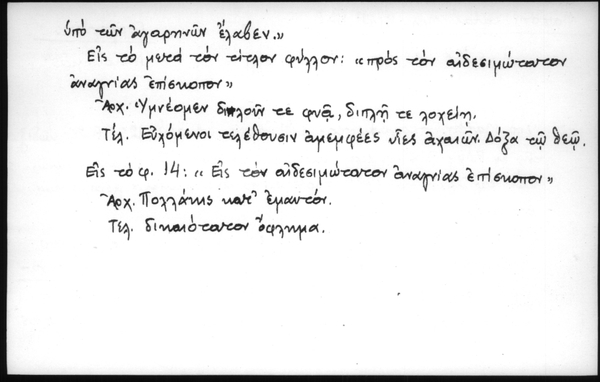 ὑπὸ τῶν ἀγαρηνῶν ἔλαβεν.»
Εἰς τὸ μετὰ τὸν τίτλον φύλλον: «πρὸς τὸν αἰδεσιμώτατον
ἀναγνίας ἐπίσκοπον»
Ἀρχ. Ὑμνέομεν διπλοῦν τε φυᾷ, διπλῇ τε λοχείῃ.
Τέλ. Εὐχόμενοι τελέθουσιν ἀμεμφέες υἷες ἀχαιῶν. Δόξα τῷ θεῷ.
Εἰς τὸ φ. 14: «Εἰς τὸν αἰδεσιμώτατον ἀναγνίας ἐπίσκοπον»
Ἀρχ. Πολλάκις κατ' ἐμαυτόν.
Τέλ. δικαιότατον ὄφλημα.